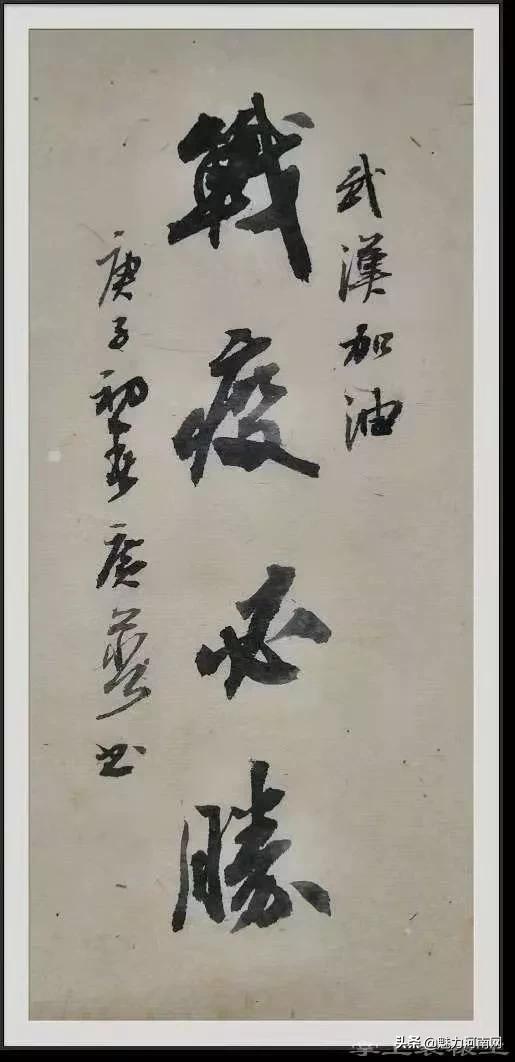 武漢加油
戰疫必勝
庚子初春 书
头条 @魅力河南网